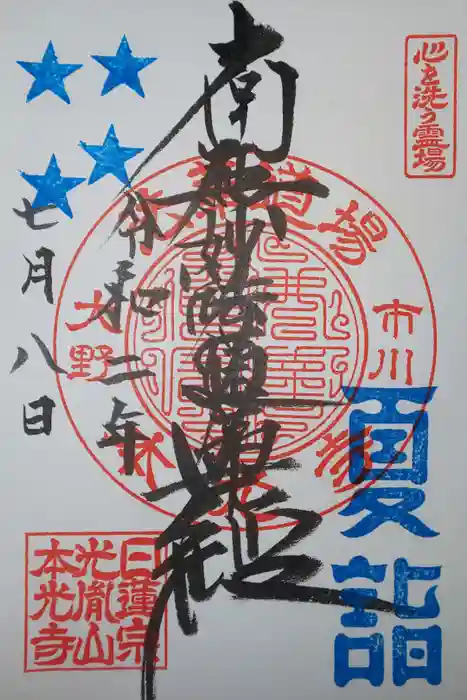 心を洗う霊場
南無妙法蓮華経
道場
市川
大野
夏詣
令和二年
七月八日
日蓮宗
光胤山
本光寺